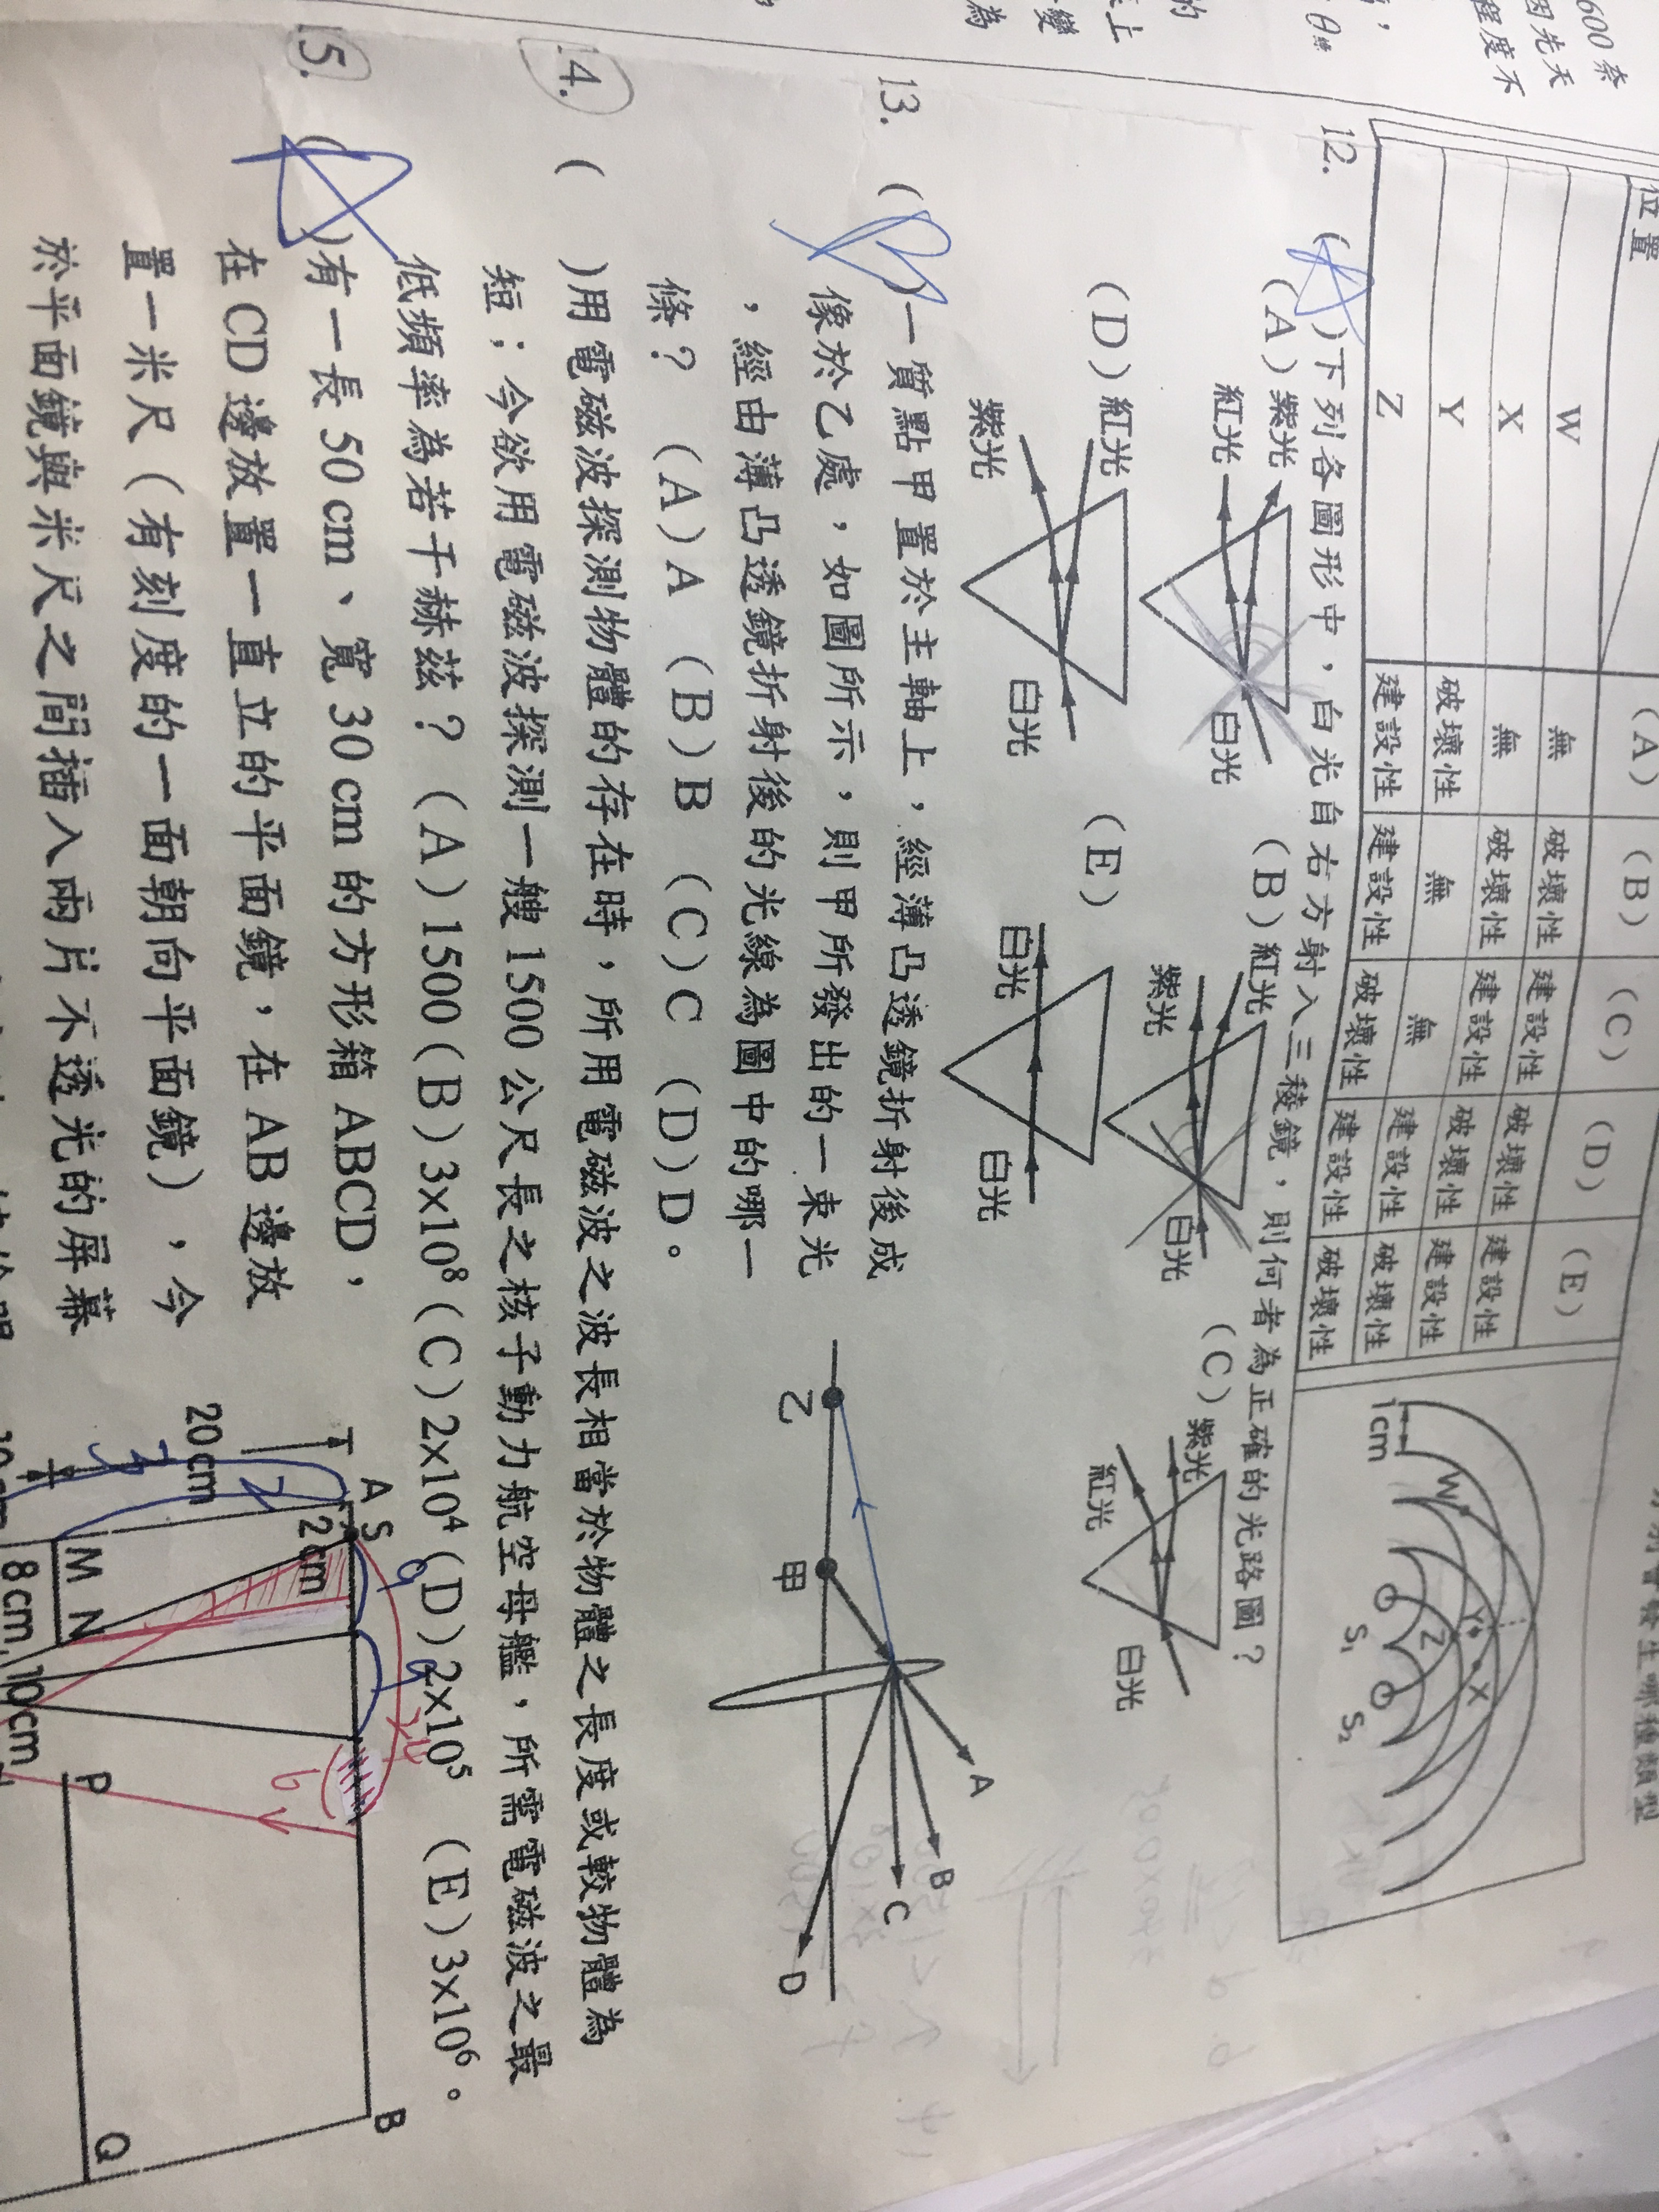 600 奈
因先天
程度不
位置 (A) (B) (C) (D) (E)
W 無 破壞性 建設性 破壞性 建設性
X 無 破壞性 建設性 破壞性 建設性
Y 破壞性 無 無 建設性 破壞性
Z 建設性 建設性 破壞性 建設性 破壞性
1cm
W
Y
X
Z
S₁
S₂
12. ( )下列各圖形中，白光自右方射入三稜鏡，則何者為正確的光路圖？
(A) 紫光 紅光 白光
(B) 紅光 紫光 白光
(C) 紫光 紅光 白光
(D) 紅光 紫光 白光
(E) 白光 白光
13. ( )一質點甲置於主軸上，經薄凸透鏡折射後成
像於乙處，如圖所示，則甲所發出的一束光
，經由薄凸透鏡折射後的光線為圖中的哪一
條？ (A)A (B)B (C)C (D)D。
乙
甲
A
B
C
D
14. ( )用電磁波探測物體的存在時，所用電磁波之波長相當於物體之長度或較物體為
短；今欲用電磁波探測一艘1500公尺長之核子動力航空母艦，所需電磁波之最
低頻率為若干赫茲？ (A)1500 (B)3x10⁸ (C)2x10⁴ (D)2x10⁵ (E)3x10⁶。
15. ( )有一長50cm、寬30cm的方形箱ABCD，
在CD邊放置一直立的平面鏡，在AB邊放
置一米尺（有刻度的一面朝向平面鏡），今
於平面鏡與米尺之間插入兩片不透光的屏幕
A
S
B
2cm
20cm
M
N
P
Q
8cm
10cm